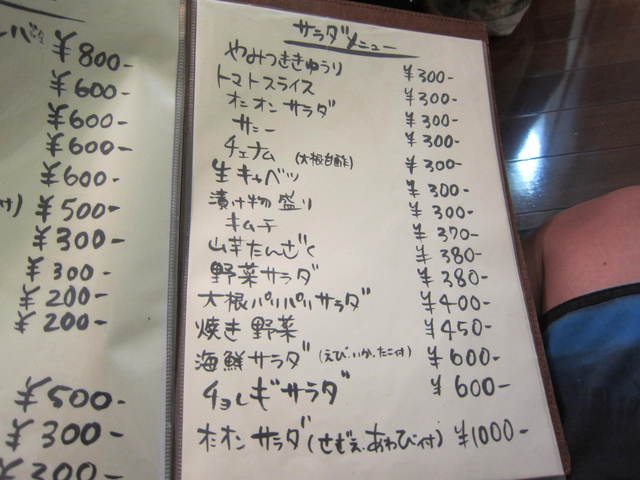 ¥800-
¥600-
¥600-
¥600-
¥600-
付) ¥500-
¥300-
¥300-
¥200-
¥200-
¥500-
¥300-
¥300-
サラダメニュー
やみつききゅうり ¥300-
トマトスライス ¥300-
オニオンサラダ ¥300-
サニー ¥300-
チェナム (大根白酢) ¥300-
生キャベツ ¥300-
漬け物盛り ¥300-
キムチ ¥370-
山芋たんざく ¥380-
野菜サラダ ¥380-
大根パリパリサラダ ¥400-
焼き野菜 ¥450-
海鮮サラダ (えび.いか.たこ付) ¥600-
チョレギサラダ ¥600-
オニオンサラダ (あわび付) ¥1000-